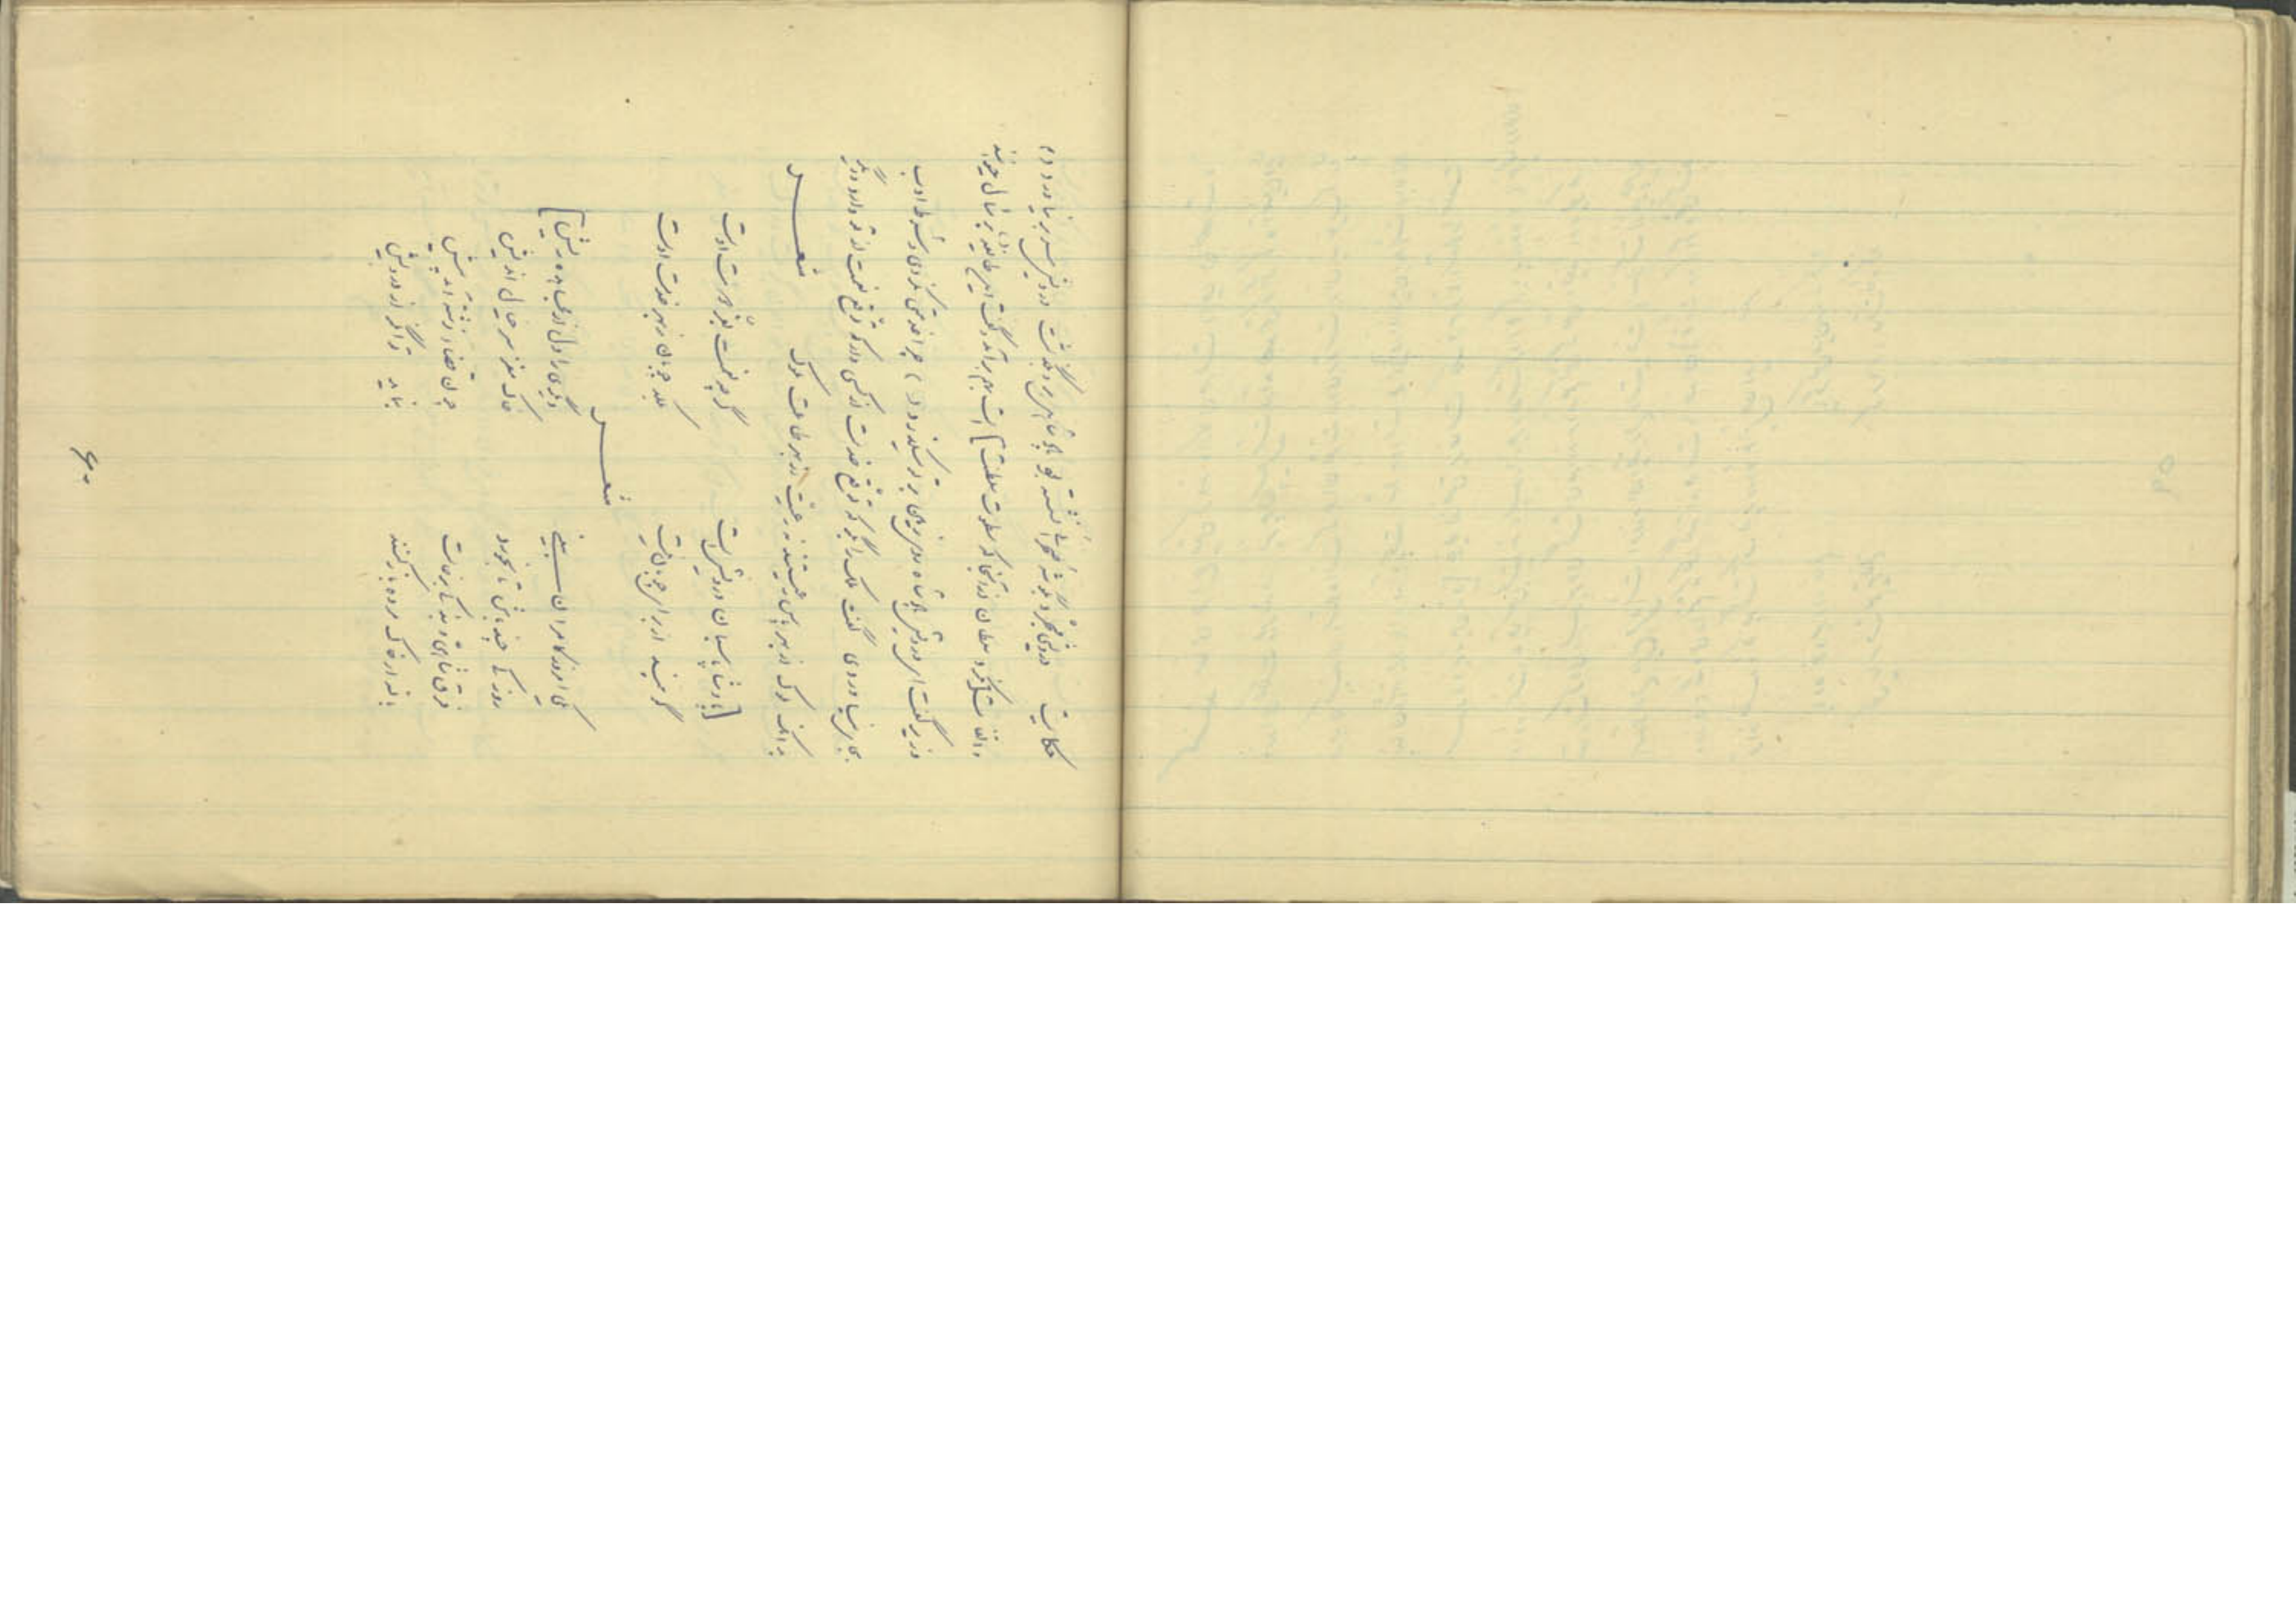 حکایت درویشی مجرد بگوشه صحرا نشسته بود پادشاهی بر و بگذشت درویش سر بر نیاورد و
التفات نکرد سلطان از آنجا که سطوت سلطنت است بهم برآمد و گفت این طایفه بر مثال حیوانند
وزیر گفت ای درویش پادشاه روی زمین بر تو بگذرد چرا خدمتی نکردی و شرط ادب
بجای نیاوردی گفت ملک را بگو توقع خدمت از کسی دار که توقع نعمت از تو دارد و دیگر
بدانکه ملوک از بهر پاس رعیتند نه رعیت از بهر طاعت ملوک شعر
پادشاه پاسبان درویش است گرچه نعمت بفر دولت اوست
گوسپند از برای چوپان نیست بلکه چوپان از بهر خدمت اوست
شعر
یکی امروز کامران بینی دیگری را دل از مجاهده ریش
روزکی چند باش تا بخورد خاک مغز سر خیال اندیش
فرق شاهی و بندگی برخاست چون قضا نوشته آمد پیش
گر از خاک مرده باز کنند نماید توانگر از درویش
۶۰